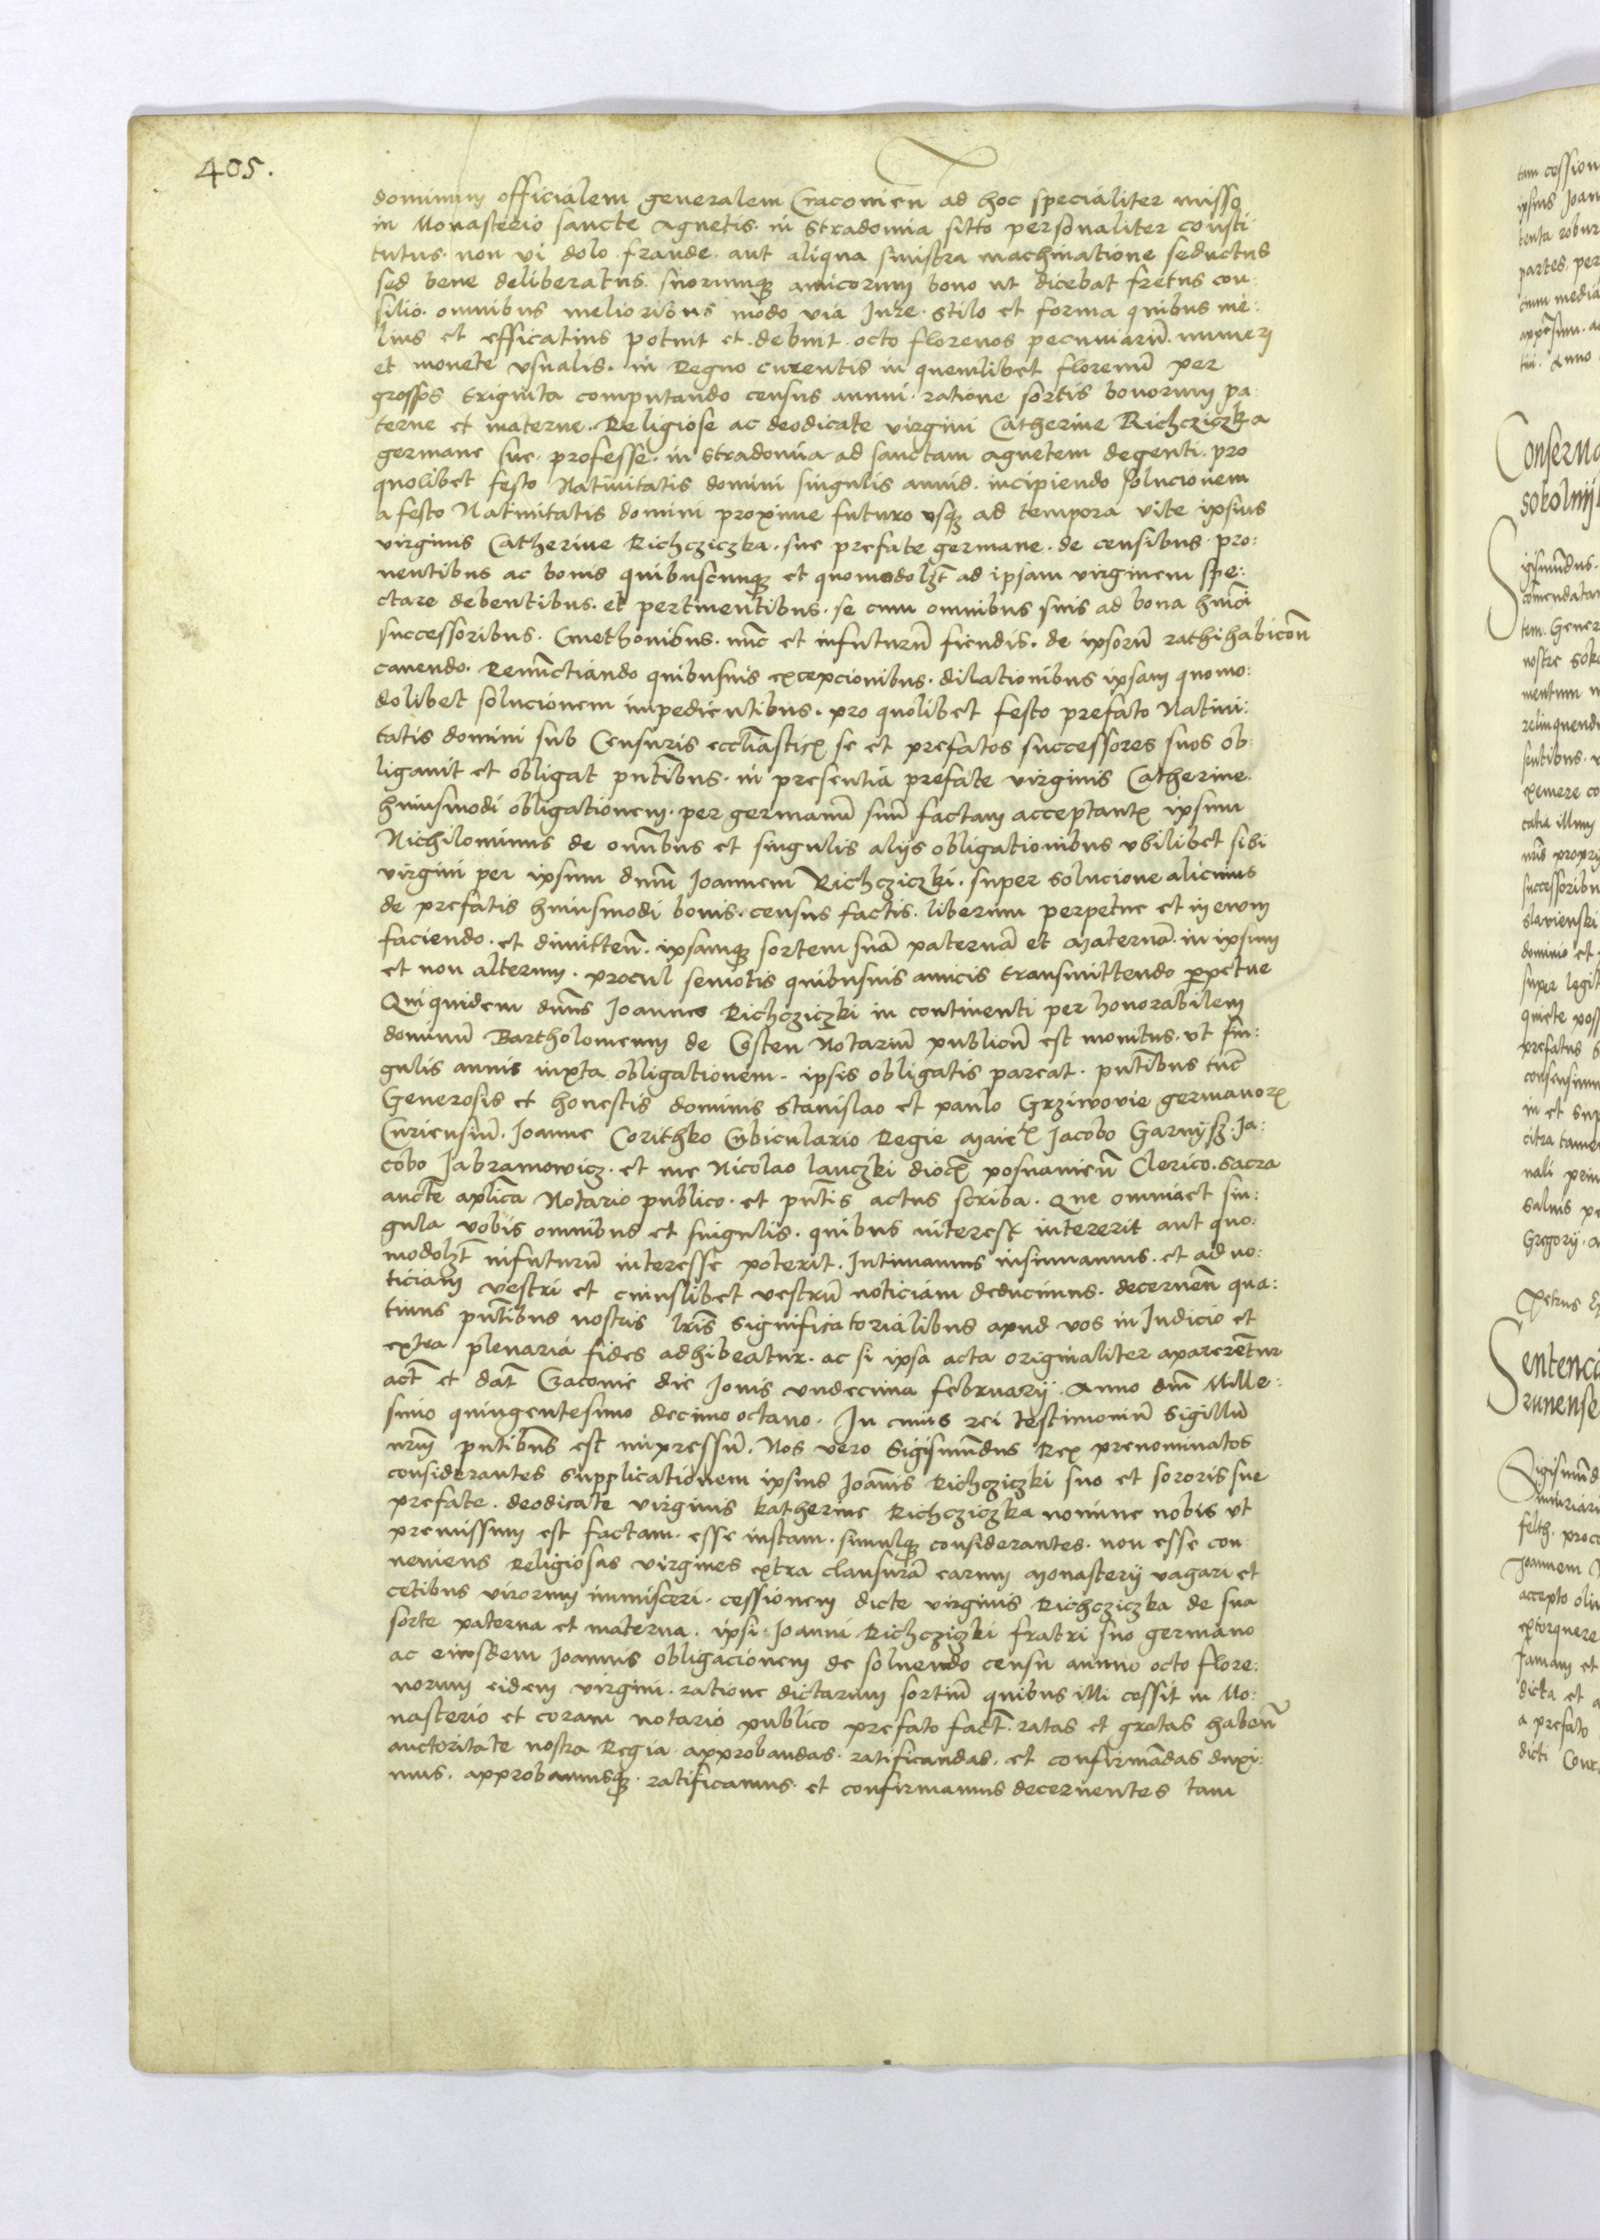 405.
dominum officialem generalem Cracovien̄ ad hoc specialiter misso
in Monasterio sancte Agnetis in Stradomia sitto personaliter consti
tutus. non vi dolo fraude aut aliqua sinistra machinatione seductus
sed bene deliberatus suorumqȝ amicorum bono ut dicebat fretus con:
silio. omnibus melioribus modo via Jure. stilo et forma quibus me:
lius et efficatius potuit et debuit. octo florenos pecuniarū numeri
et monete usualis. in Regno curentis in quemlibet florenū per
grossos triginta computando census annui ratione sortis bonorum pa:
terne et materne. Religiose ac deodicate virgini Catherine Richcziczka
germane sue professe in Stradomia ad sanctam Agnetem degenti. pro
quolibet festo Nativitatis domini singulis annis. incipiendo solucionem
a festo Nativitatis domini proxime futuro usqȝ ad tempora vite ipsius
virginis Catherine Richcziczka. sue prefate germane. de censibus pro:
ventibus ac bonis quibuscunqȝ et quomodolȝt ad ipsam virginem spe:
ctare debentibus. et pertinentibus. se cum omnibus suis ad bona hmōi
successoribus. Cmethonibus. nūc et infuturū fiendis. de ipsorū rathihabicōn̄
cavendo. Renūctiando quibusvis excepcionibus. dilationibus ipsam quomo:
dolibet solucionem impedientibus. pro quolibet festo prefato Nativi:
tatis domini sub Censuris eccliasticꝭ se et prefatos successores suos ob
ligavit et obligat pn̄tibus. in presentia prefate virginis Catherine
huiusmodi obligationem. per germanū suū factam acceptantꝭ ipsum
Nichilominus de omībus et singulis alijs obligationibus ubilibet sibi
virgini per ipsum dnū Joannem Richcziczki. super solucione alicuius
de prefatis huiusmodi bonis. census factis. liberum perpetue et in evum
faciendo. et dimitten̄. ipsamqȝ sortem suā paternā et maternā in ipsum
et non alterum. procul semotis quibusvis amicis transmittendo ꝑpetue
Qui quidem dn̄s Joannes Richcziczki in continenti per honorabilem
dominū Bartholomeum de Costen Notariū publicū est monitus. ut sin:
gulis annis iuxta obligationem. ipsis obligatis pareat. pn̄tibus tūc
Generosis et honestis dominis Stanislao et paulo Grziwovie germanorꝭ
Curiensiū. Joanne Corithko Cubiculario Regie Maietꝭ Jacobo Garnijsz. Ja:
cobo Jabramowicz. et me Nicolao Lauczki diocꝭ posnanien̄ Clerico. sacra
aucte aplica Notario publico. et pn̄tis actus scriba. Que omnia et sin:
gula vobis omnibus et singulis. quibus interest intererit aut quo:
modolȝt infuturū interesse poterit. Intimamus insinuamus. et ad no:
ticiam vestri et cuiuslibet vestrū noticiam deducimus. decernen̄ qua:
tinus pn̄tibus nostris lr̄is significatorialibus apud vos in Judicio et
extra plenaria fides adhibeatur. ac si ipsa acta originaliter aparerētur
act̄ et dat̄ Cracovie die Jovis undecima februarij. Anno dn̄i Mille:
simo quingentesimo decimo octavo. In cuius rei testimoniū sigillū
nr̄m pn̄tibus est impressū. Nos vero Sigismūdus Rex prenominatos
considerantes supplicationem ipsius Joānis Richcziczki suo et sororis sue
prefate. deodicate virginis katherine Richcziczka nomine nobis ut
premissum est factam. esse iustam. simulqȝ considerantes. non esse con
veniens Religiosas virgines extra clausurā earum monasterij vagari et
cetibus virorum immisceri. cessionem dicte virginis Richcziczka de sua
sorte paterna et materna. ipsi Joanni Richcziczki fratri suo germano
ac eiusdem Joannis obligacionem de solvendo censu annuo octo flore:
norum eidem virgini. ratione dictarum sortiū quibus illi cessit in Mo:
nasterio et coram notario publico prefato fact̄. ratas et gratas haben̄
auctoritate nostra Regia approbandas. ratificandas. et confirmādas duxi:
mus. approbamusqȝ. ratificamus. et confirmamus decernentes tam